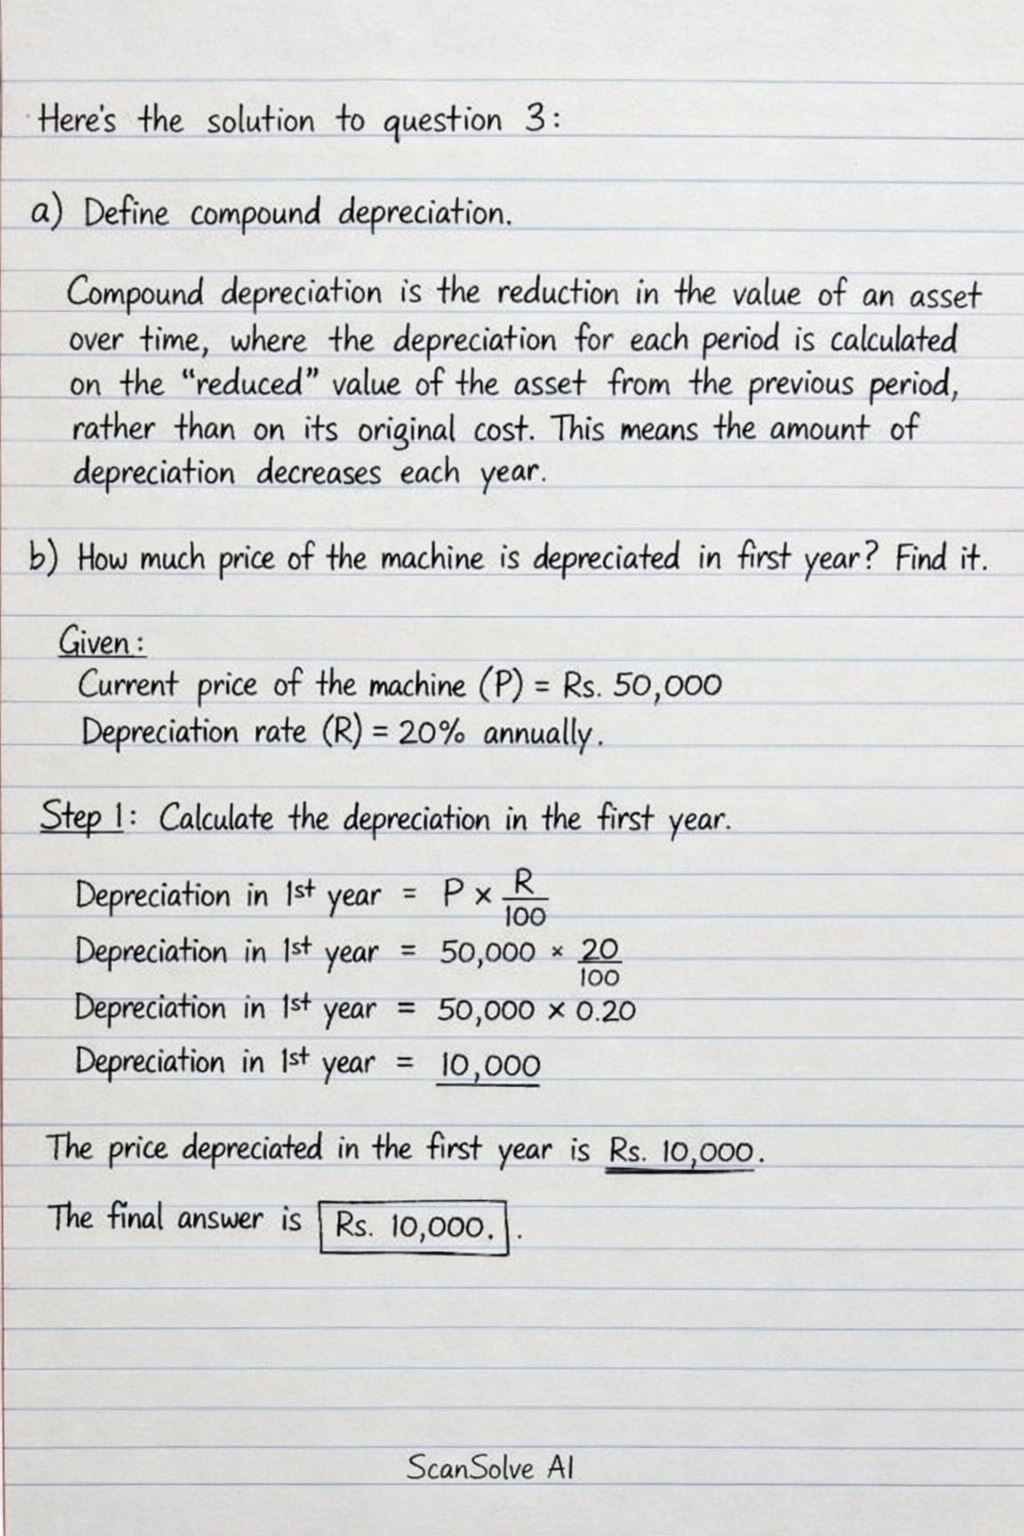 Here's the solution to question 3:
a) Define compound depreciation.
Compound depreciation is the reduction in the value of an asset
over time, where the depreciation for each period is calculated
on the “reduced” value of the asset from the previous period,
rather than on its original cost. This means the amount of
depreciation decreases each year.
b) How much price of the machine is depreciated in first year? Find it.
Given:
Current price of the machine (P) = Rs. 50,000
Depreciation rate (R) = 20% annually.
Step 1: Calculate the depreciation in the first year.
Depreciation in 1st year = P × R/100
Depreciation in 1st year = 50,000 × 20/100
Depreciation in 1st year = 50,000 × 0.20
Depreciation in 1st year = 10,000
The price depreciated in the first year is Rs. 10,000.
The final answer is Rs. 10,000. .
ScanSolve AI